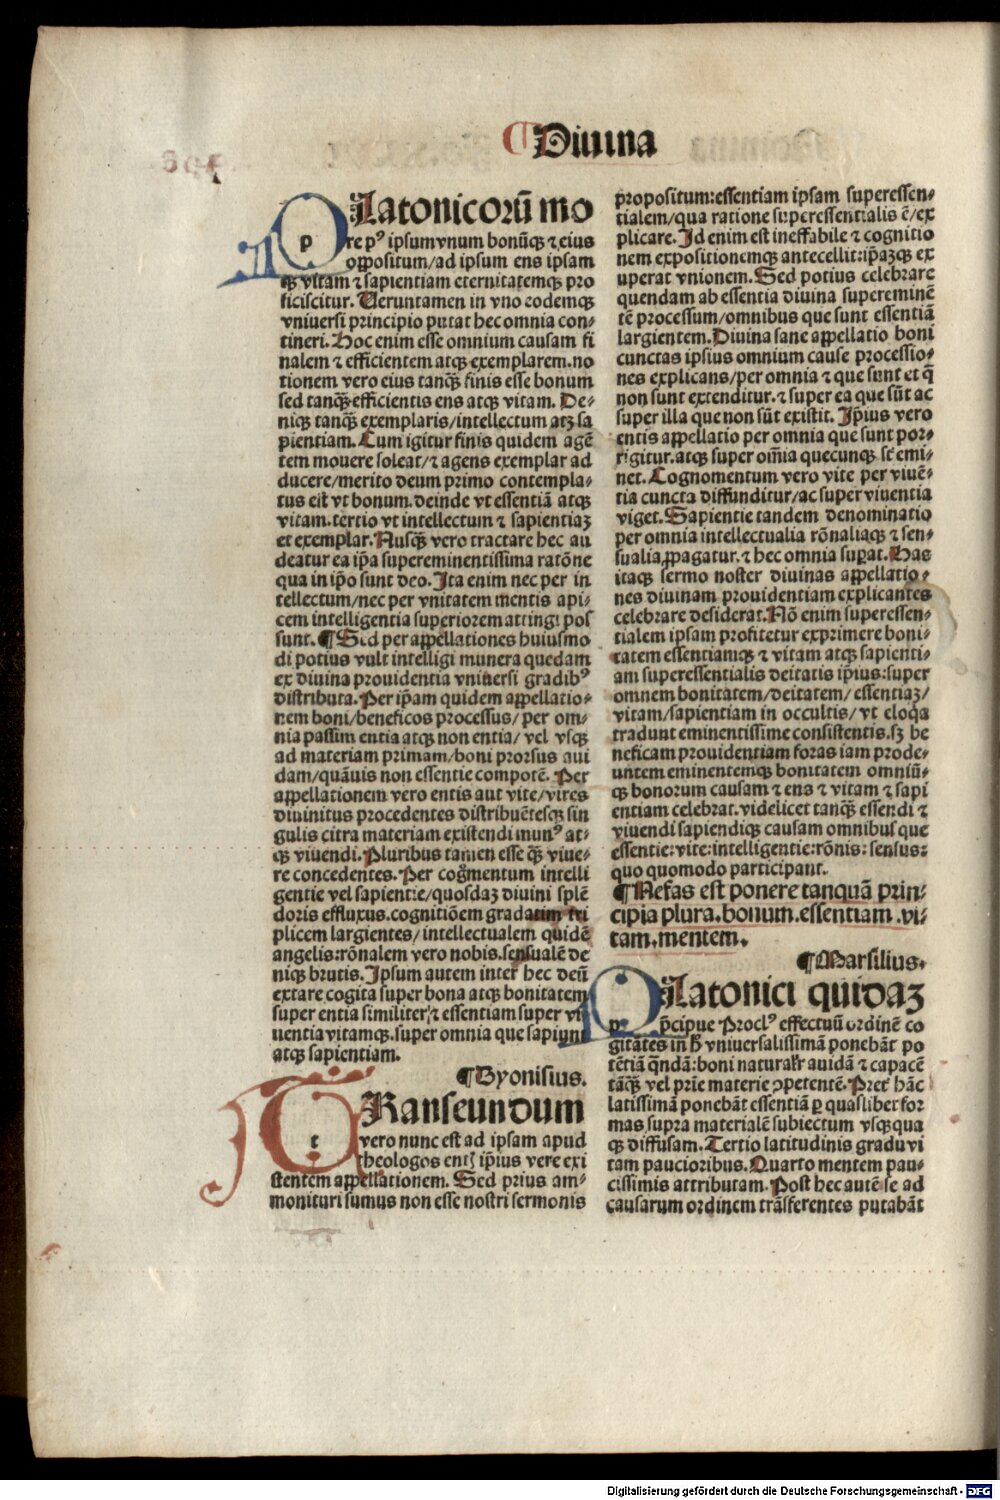 ¶ Diuina
PLatonicorū mo
re pꝰ ipsum vnum bonūqꝫ ⁊ eius
oppositum/ad ipsum ens ipsam
qꝫ vitam ⁊ sapientiam eternitatemqꝫ pro
ficiscitur. Ueruntamen in vno eodemqꝫ
vniuersi principio putat hec omnia con⸗
tineri. Hoc enim esse omnium causam fi
nalem ⁊ efficientem atqꝫ exemplarem. no
tionem vero eius tanqꝫ̄ finis esse bonum
sed tanqꝫ̄ efficientis ens atqꝫ vitam. De⸗
niqꝫ tanqꝫ̄ exemplaris/intellectum atqꝫ sa
pientiam. Cum igitur finis quidem agē
tem mouere soleat/⁊ agens exemplar ad
ducere/merito deum primo contempla⸗
tus est vt bonum. deinde vt essentiā atqꝫ
vitam. tertio vt intellectum ⁊ sapientiaꝫ
et exemplar. Nusqꝫ̄ vero tractare hec au
deatur ea ip̄a supereminentissima ratōne
qua in ip̄o sunt deo. Ita enim nec per in
tellectum/nec per vnitatem mentis api⸗
cem intelligentia superiorem attingi pos
sunt. ¶ Sed per appellationes huiusmo
di potius vult intelligi munera quedam
ex diuina prouidentia vniuersi gradibꝰ
distributa. Per ip̄am quidem appellatio⸗
nem boni/beneficos processus/per om⸗
nia passim entia atqꝫ non entia/ vel vsqꝫ
ad materiam primam/boni prorsus aui
dam/quāuis non essentie compotē. Per
appellationem vero entis aut vite/vires
diuinitus procedentes distribuētesqꝫ sin
gulis citra materiam existendi munꝰ at⸗
qꝫ viuendi. Pluribus tamen esse qꝫ̄ viue⸗
re concedentes. Per cog̃mentum intelli
gentie vel sapientie/quosdaꝫ diuini splē
doris effluxus. cognitiōem gradatim tri
plicem largientes/intellectualem quidē
angelis: rōnalem vero nobis. sensualē de
niqꝫ brutis. Ipsum autem inter hec deū
extare cogita super bona atqꝫ bonitatem
super entia similiter/⁊ essentiam super vi
uentia vitamqꝫ. super omnia que sapiunt
atqꝫ sapientiam.
¶ Dyonisius.
TRanseundum
vero nunc est ad ipsam apud
theologos entꝭ ip̄ius vere exi
stentem appellationem. Sed prius am⸗
monituri sumus non esse nostri sermonis
propositum: essentiam ipsam superessen⸗
tialem/qua ratione superessentialis ē/ex
plicare. Id enim est ineffabile ⁊ cognitio
nem expositionemqꝫ antecellit: ip̄aꝫqꝫ ex
uperat vnionem. Sed potius celebrare
quendam ab essentia diuina supereminē
tē processum/omnibus que sunt essentiā
largientem. Diuina sane appellatio boni
cunctas ipsius omnium cause processio⸗
nes explicans/per omnia ⁊ que sunt et q̄
non sunt extenditur. ⁊ super ea que sūt ac
super illa que non sūt existit. Ip̄ius vero
entis appellatio per omnia que sunt por⸗
rigitur. atqꝫ super om̄ia quecunqꝫ st̄ emi⸗
net. Cognomentum vero vite per viuē⸗
tia cuncta diffunditur/ac super viuentia
viget. Sapientie tandem denominatio
per omnia intellectualia rōnaliaqꝫ ⁊ sen⸗
sualia ꝓpagatur. ⁊ hec omnia suꝑat. Has
itaqꝫ sermo noster diuinas appellatio⸗
nes diuinam prouidentiam explicantes
celebrare desiderat. Nō enim superessen⸗
tialem ipsam profitetur exprimere boni⸗
tatem essentiamqꝫ ⁊ vitam atqꝫ sapienti⸗
am superessentialis deitatis ip̄ius: super
omnem bonitatem/deitatem/ essentiaꝫ/
vitam/sapientiam in occultis/ vt eloqa
tradunt eminentissime consistentis. sꝫ be
neficam prouidentiam foras iam prode⸗
untem eminentemqꝫ bonitatem omniū⸗
qꝫ bonorum causam ⁊ ens ⁊ vitam ⁊ sapi
entiam celebrat. videlicet tanqꝫ̄ essendi ⁊
viuendi sapiendiqꝫ causam omnibus que
essentie: vite: intelligentie: rōnis: sensus:
quo quomodo participant.
¶ Nefas est ponere tanquā prin⸗
cipia plura. bonum. essentiam. vi⸗
tam. mentem.
¶ Marsilius.
PLatonici quidaꝫ
p̄cipue Proclꝰ effectuū ordinē co
gitātes in hꝫ vniuersalissimā ponebāt po
tētiā q̄ndā: boni naturalr̄ auidā ⁊ capacē
tāqꝫ̄ vel prīe materie ꝯpetentē. Preť hāc
latissimā ponebāt essentiā ꝑ quaslibet for
mas supra materialē subiectum vsqꝫqua
qꝫ diffusam. Tertio latitudinis gradu vi
tam paucioribus. Quarto mentem pau⸗
cissimis attributam. Post hec autē se ad
causarum ordinem trāsferentes putabāt
Digitalisierung gefördert durch die Deutsche Forschungsgemeinschaft - DFG